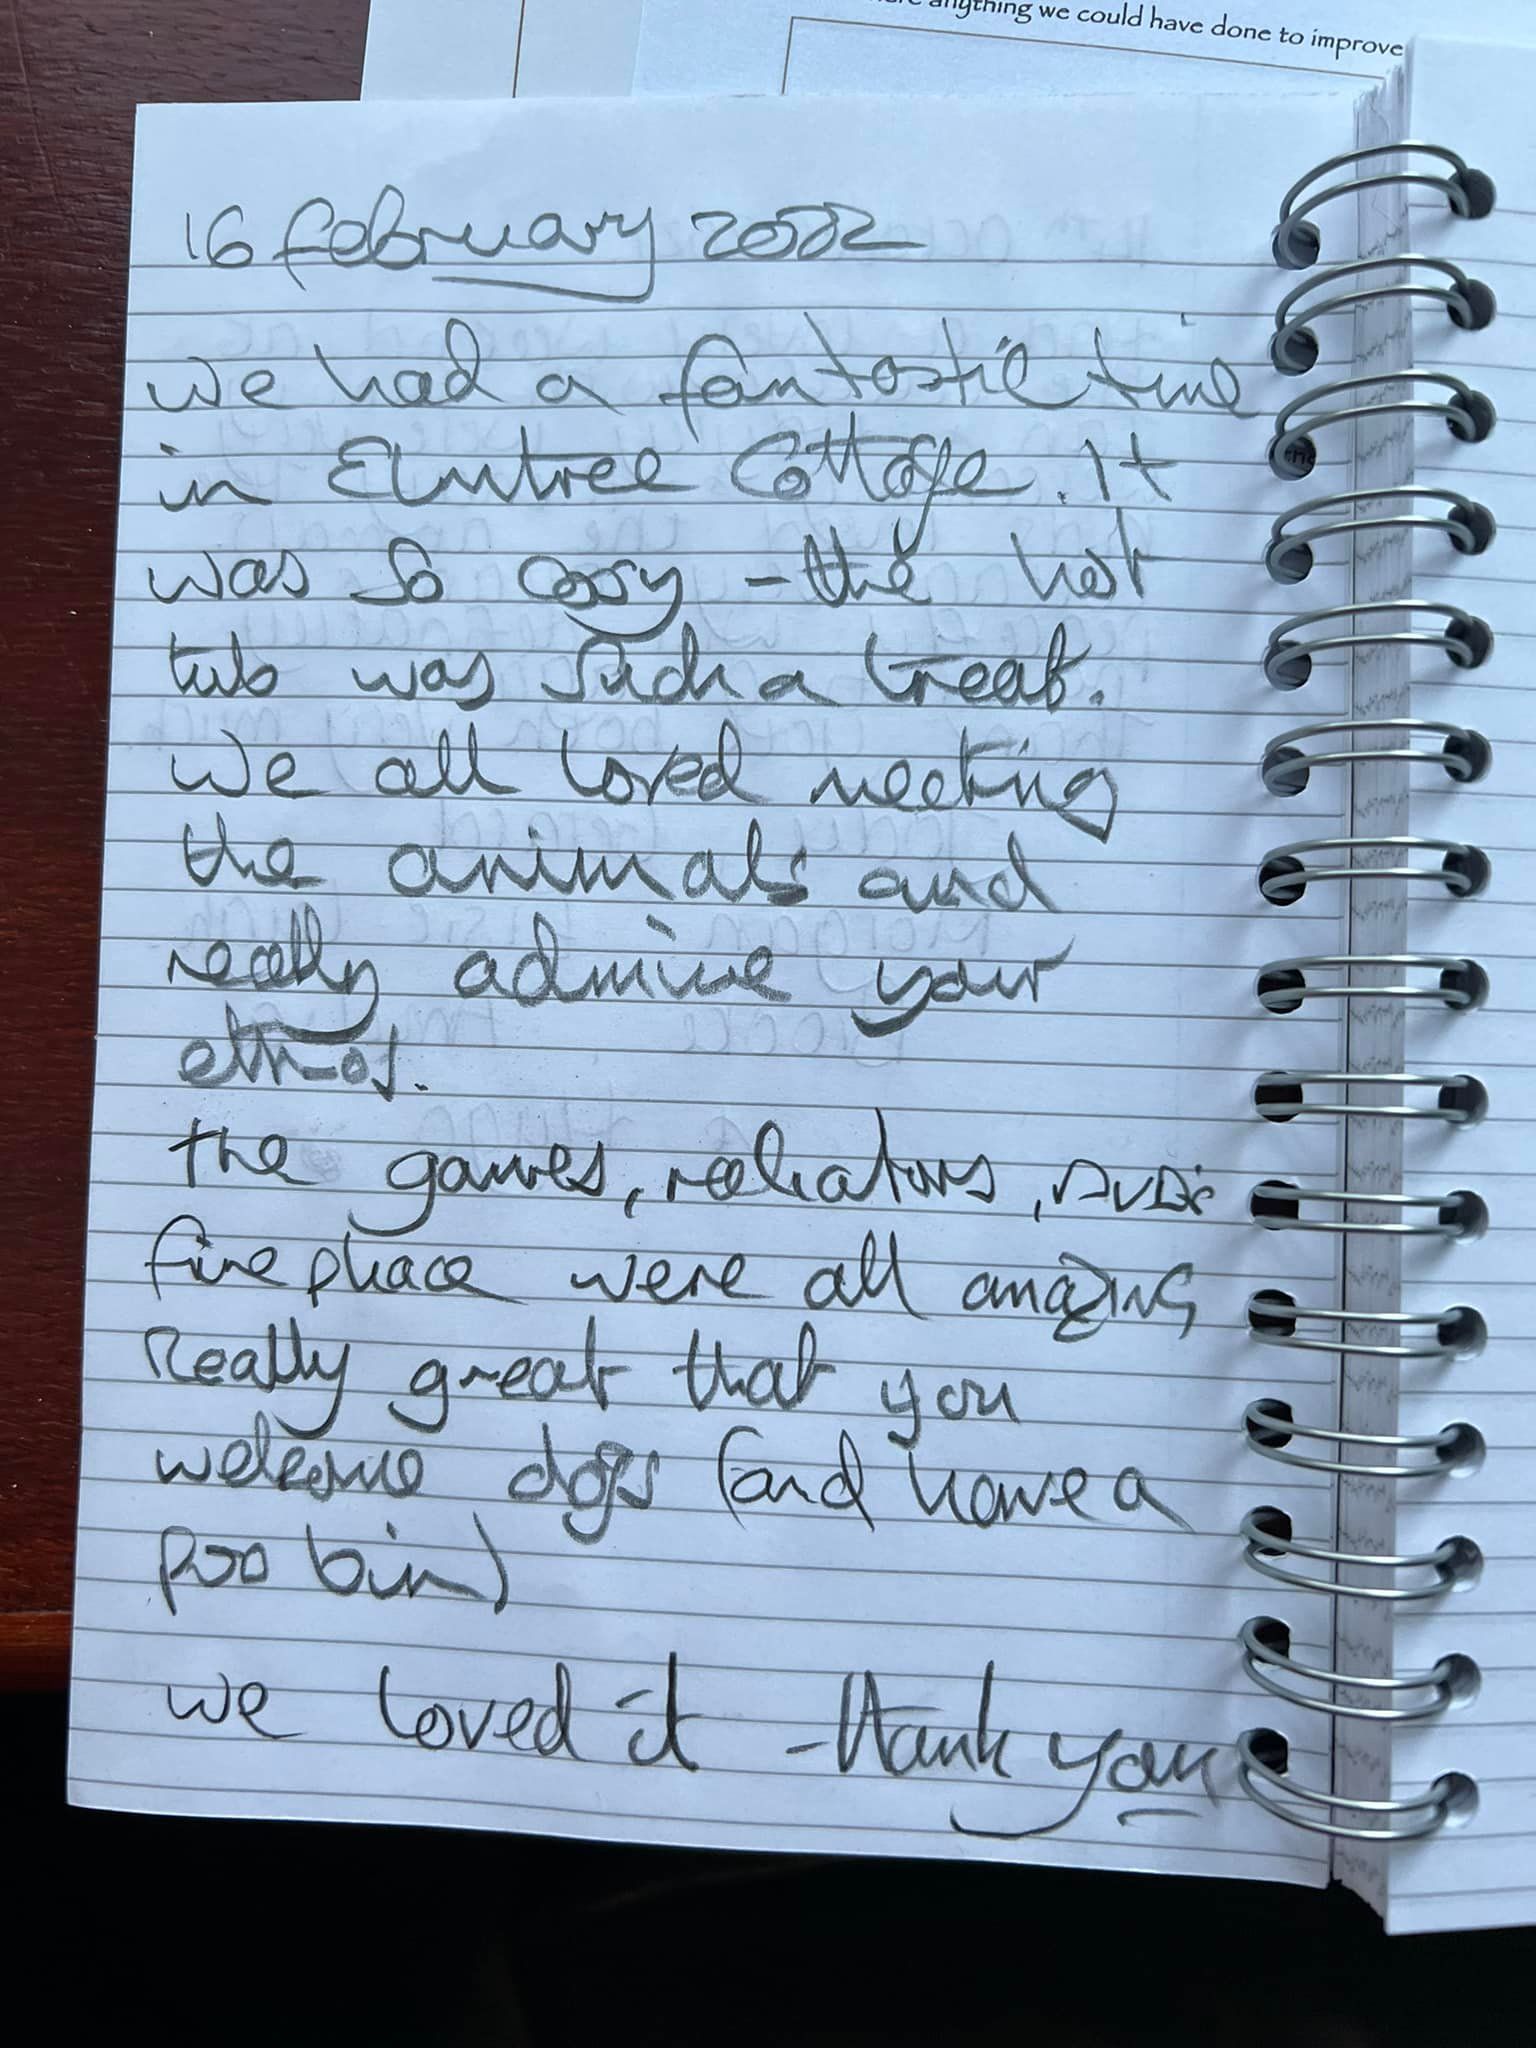 ere anything we could have done to improve
16 february 2022
we had a fantastic time
in Elmtree Cottage. It
was so cosy - the hot
tub was such a treat.
We all loved meeting
the animals and
really admire your
ethos.
The games, radiators, DVDs
fireplace were all amazing
Really great that you
welcome dogs (and have a
poo bin)
we loved it - thank you